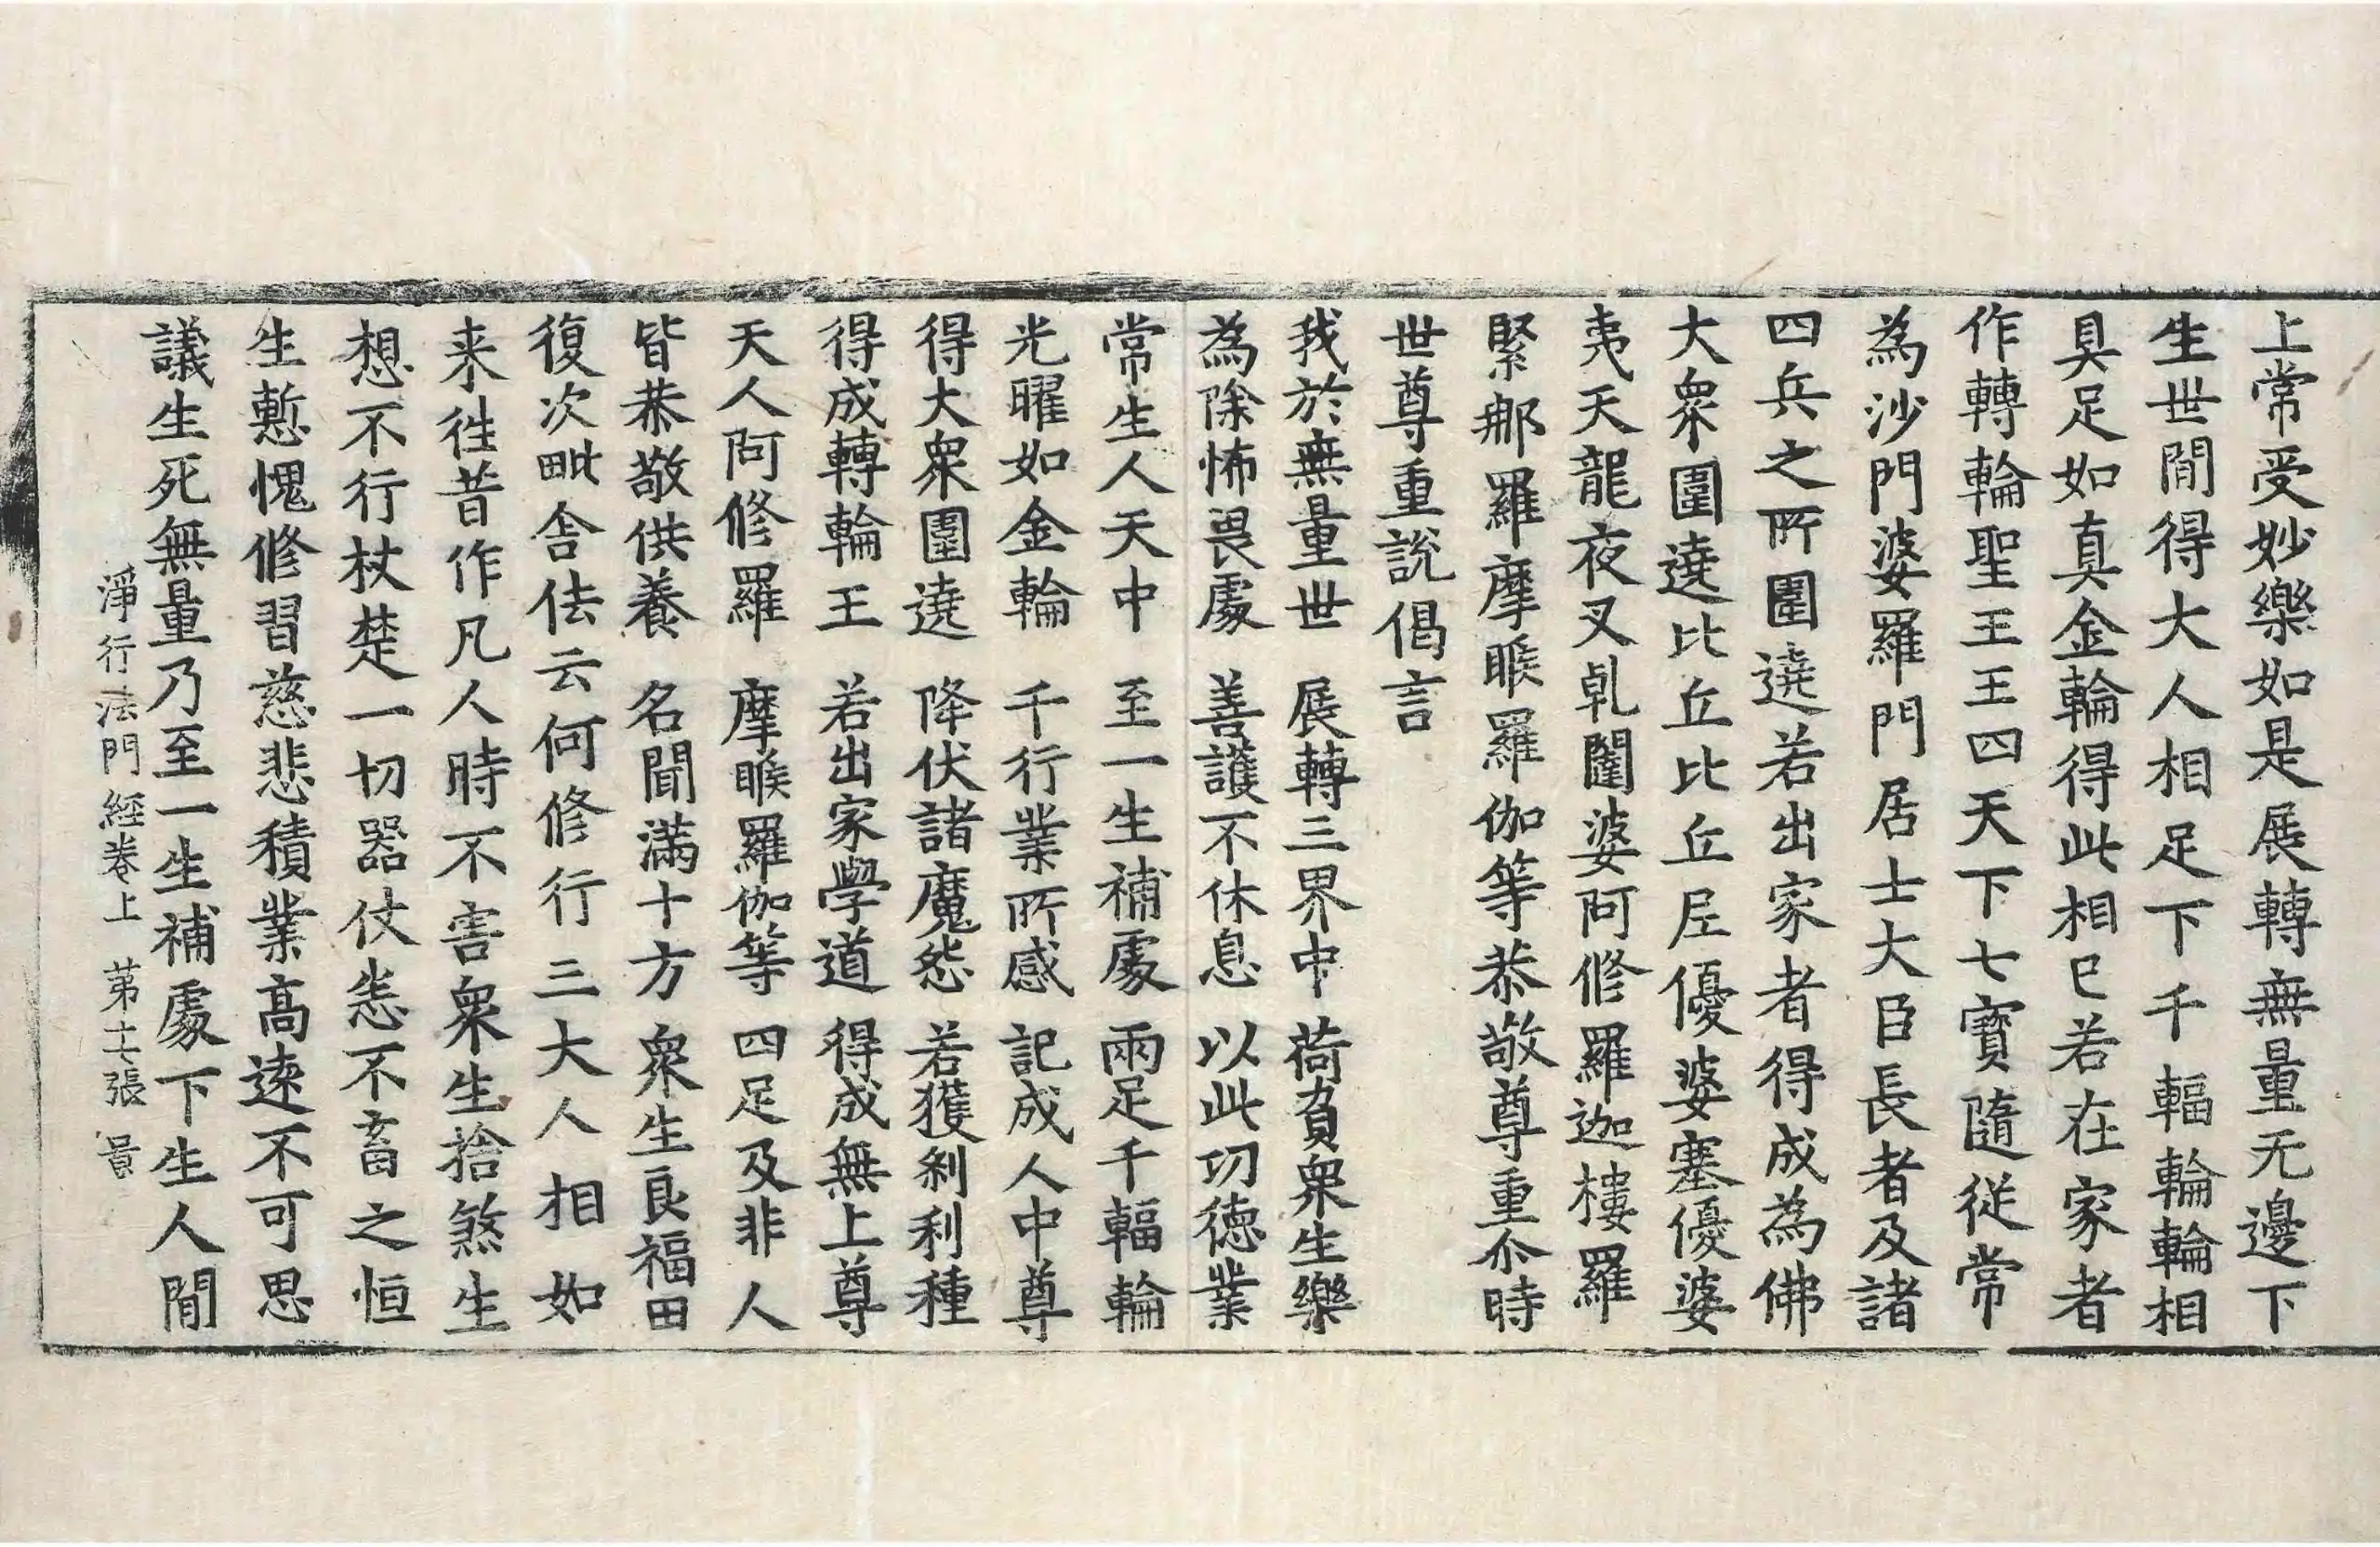 上常受妙樂如是展轉無量无邊下
生世間得大人相足下千輻輪輪相
具足如真金輪得此相已若在家者
作轉輪聖王王四天下七寳隨従常
為沙門婆羅門居士大臣長者及諸
四兵之所圍遶若出家者得成為佛
大衆圍遶比丘比丘尼優婆塞優婆
夷天龍夜叉乹闥婆阿修羅迦樓羅
緊那羅摩睺羅伽等恭敬尊重尒時
世尊重説偈言
我於無量世　展轉三界中　荷負衆生樂
為除怖畏處　善護不休息　以此功徳業
常生人天中　至一生補處　兩足千輻輪
光曜如金輪　千行業所感　記成人中尊
得大衆圍遶　降伏諸魔怨　若獲刹利種
得成轉輪王　若出家學道　得成無上尊
天人阿修羅　摩睺羅伽等　四足及非人
皆恭敬供養　名聞滿十方　衆生良福田
復次毗舎佉云何修行三大人相如
来徃昔作凡人時不害衆生捨煞生
想不行杖楚一切器仗恚不畜之恒
生慙愧修習慈悲積業高遠不可思
議生死無量乃至一生補處下生人間
淨行法門經卷上　苐十七張　景